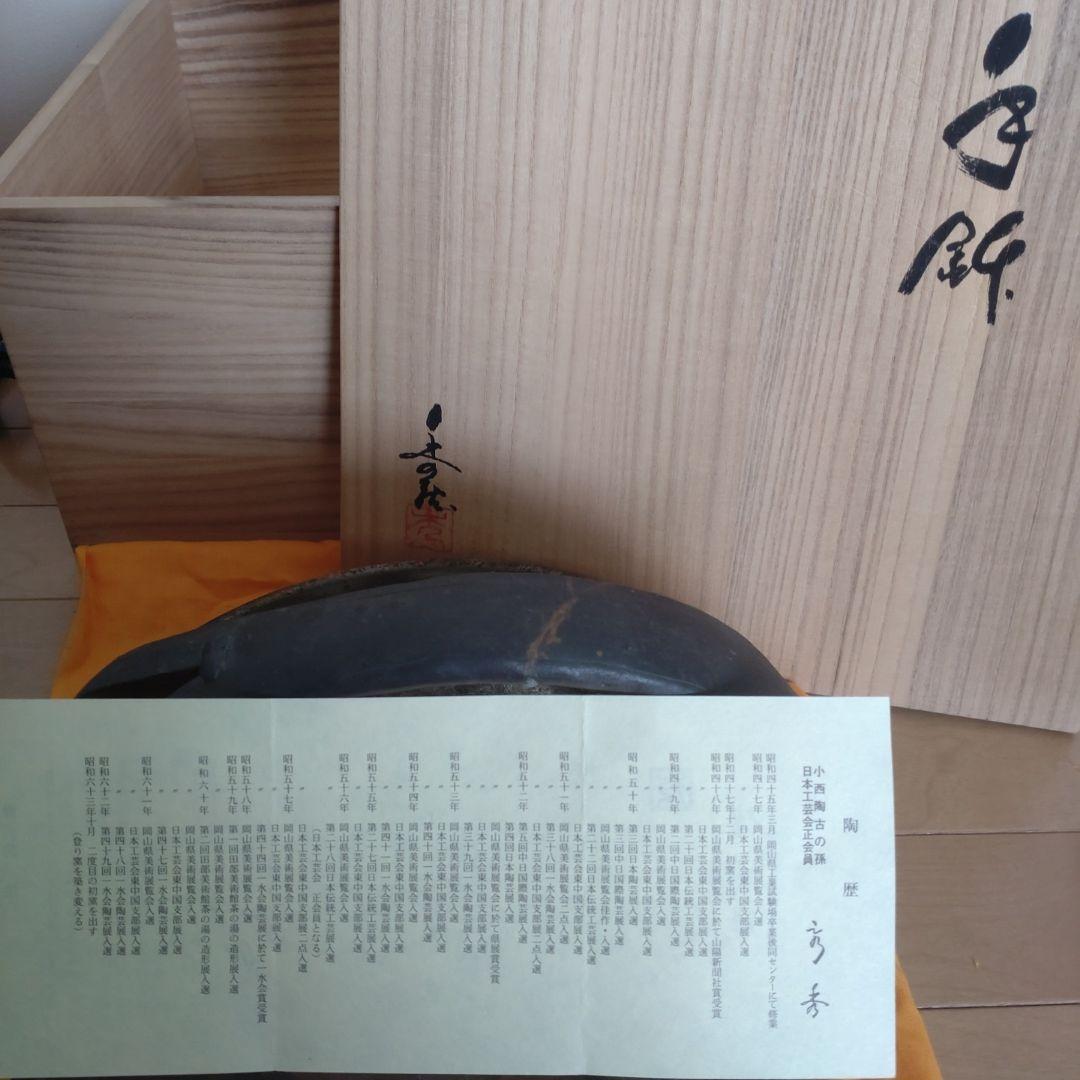 手鉢
陶歴
小西陶古の孫
日本工芸会正会員
昭和四十五年三月 岡山県工業試験場卒業後同センターにて修業
昭和四十七年 岡山県美術展覧会入選
〃 日本工芸会東中国支部展入選
昭和四十七年十二月 初窯を出す
昭和四十八年 岡山県美術展覧会に於て山陽新聞社賞受賞
〃 日本工芸会東中国支部展入選
〃 第二十回日本伝統工芸展入選
昭和四十九年 第二回中日国際陶芸展入選
〃 岡山県美術展覧会入選
〃 日本工芸会東中国支部展入選
昭和五十年 第三回日本陶芸展入選
〃 第三回中日国際陶芸展入選
〃 岡山県美術展覧会佳作・入選
〃 第二十二回日本伝統工芸展入選
〃 日本工芸会東中国支部展入選
昭和五十一年 岡山県美術展覧会二点入選
〃 第三十八回一水会陶芸展入選
〃 日本工芸会東中国支部展二点入選
昭和五十二年 第五回中日国際陶芸展入選
〃 第四回日本陶芸展入選
〃 岡山県美術展覧会に於て県展賞受賞
〃 日本工芸会東中国支部展入選
〃 第三十九回一水会陶芸展入選
昭和五十三年 岡山県美術展覧会入選
〃 日本工芸会東中国支部展入選
〃 第四十回一水会陶芸展入選
昭和五十四年 岡山県美術展覧会入選
〃 日本工芸会東中国支部展入選
〃 第四十一回一水会陶芸展入選
昭和五十五年 第二十七回日本伝統工芸展入選
〃 日本工芸会東中国支部展入選
昭和五十六年 岡山県美術展覧会入選
〃 第二十八回日本伝統工芸展入選
(日本工芸会 正会員となる)
〃 日本工芸会東中国支部展二点入選
昭和五十七年 岡山県美術展覧会入選
〃 日本工芸会東中国支部展入選
〃 第四十四回一水会陶芸展に於て一水会賞受賞
昭和五十八年 岡山県美術展覧会入選
昭和五十九年 第一回田部美術館茶の湯の造形展入選
〃 岡山県美術展覧会入選
昭和六十年 第二回田部美術館茶の湯の造形展入選
〃 日本工芸会東中国支部展入選
〃 第四十七回一水会陶芸展入選
昭和六十一年 岡山県美術展覧会入選
〃 日本工芸会東中国支部展入選
〃 第四十八回一水会陶芸展入選
昭和六十二年 第四十九回一水会陶芸展入選
昭和六十三年十月 二度目の初窯を出す
(登り窯を築き変える)